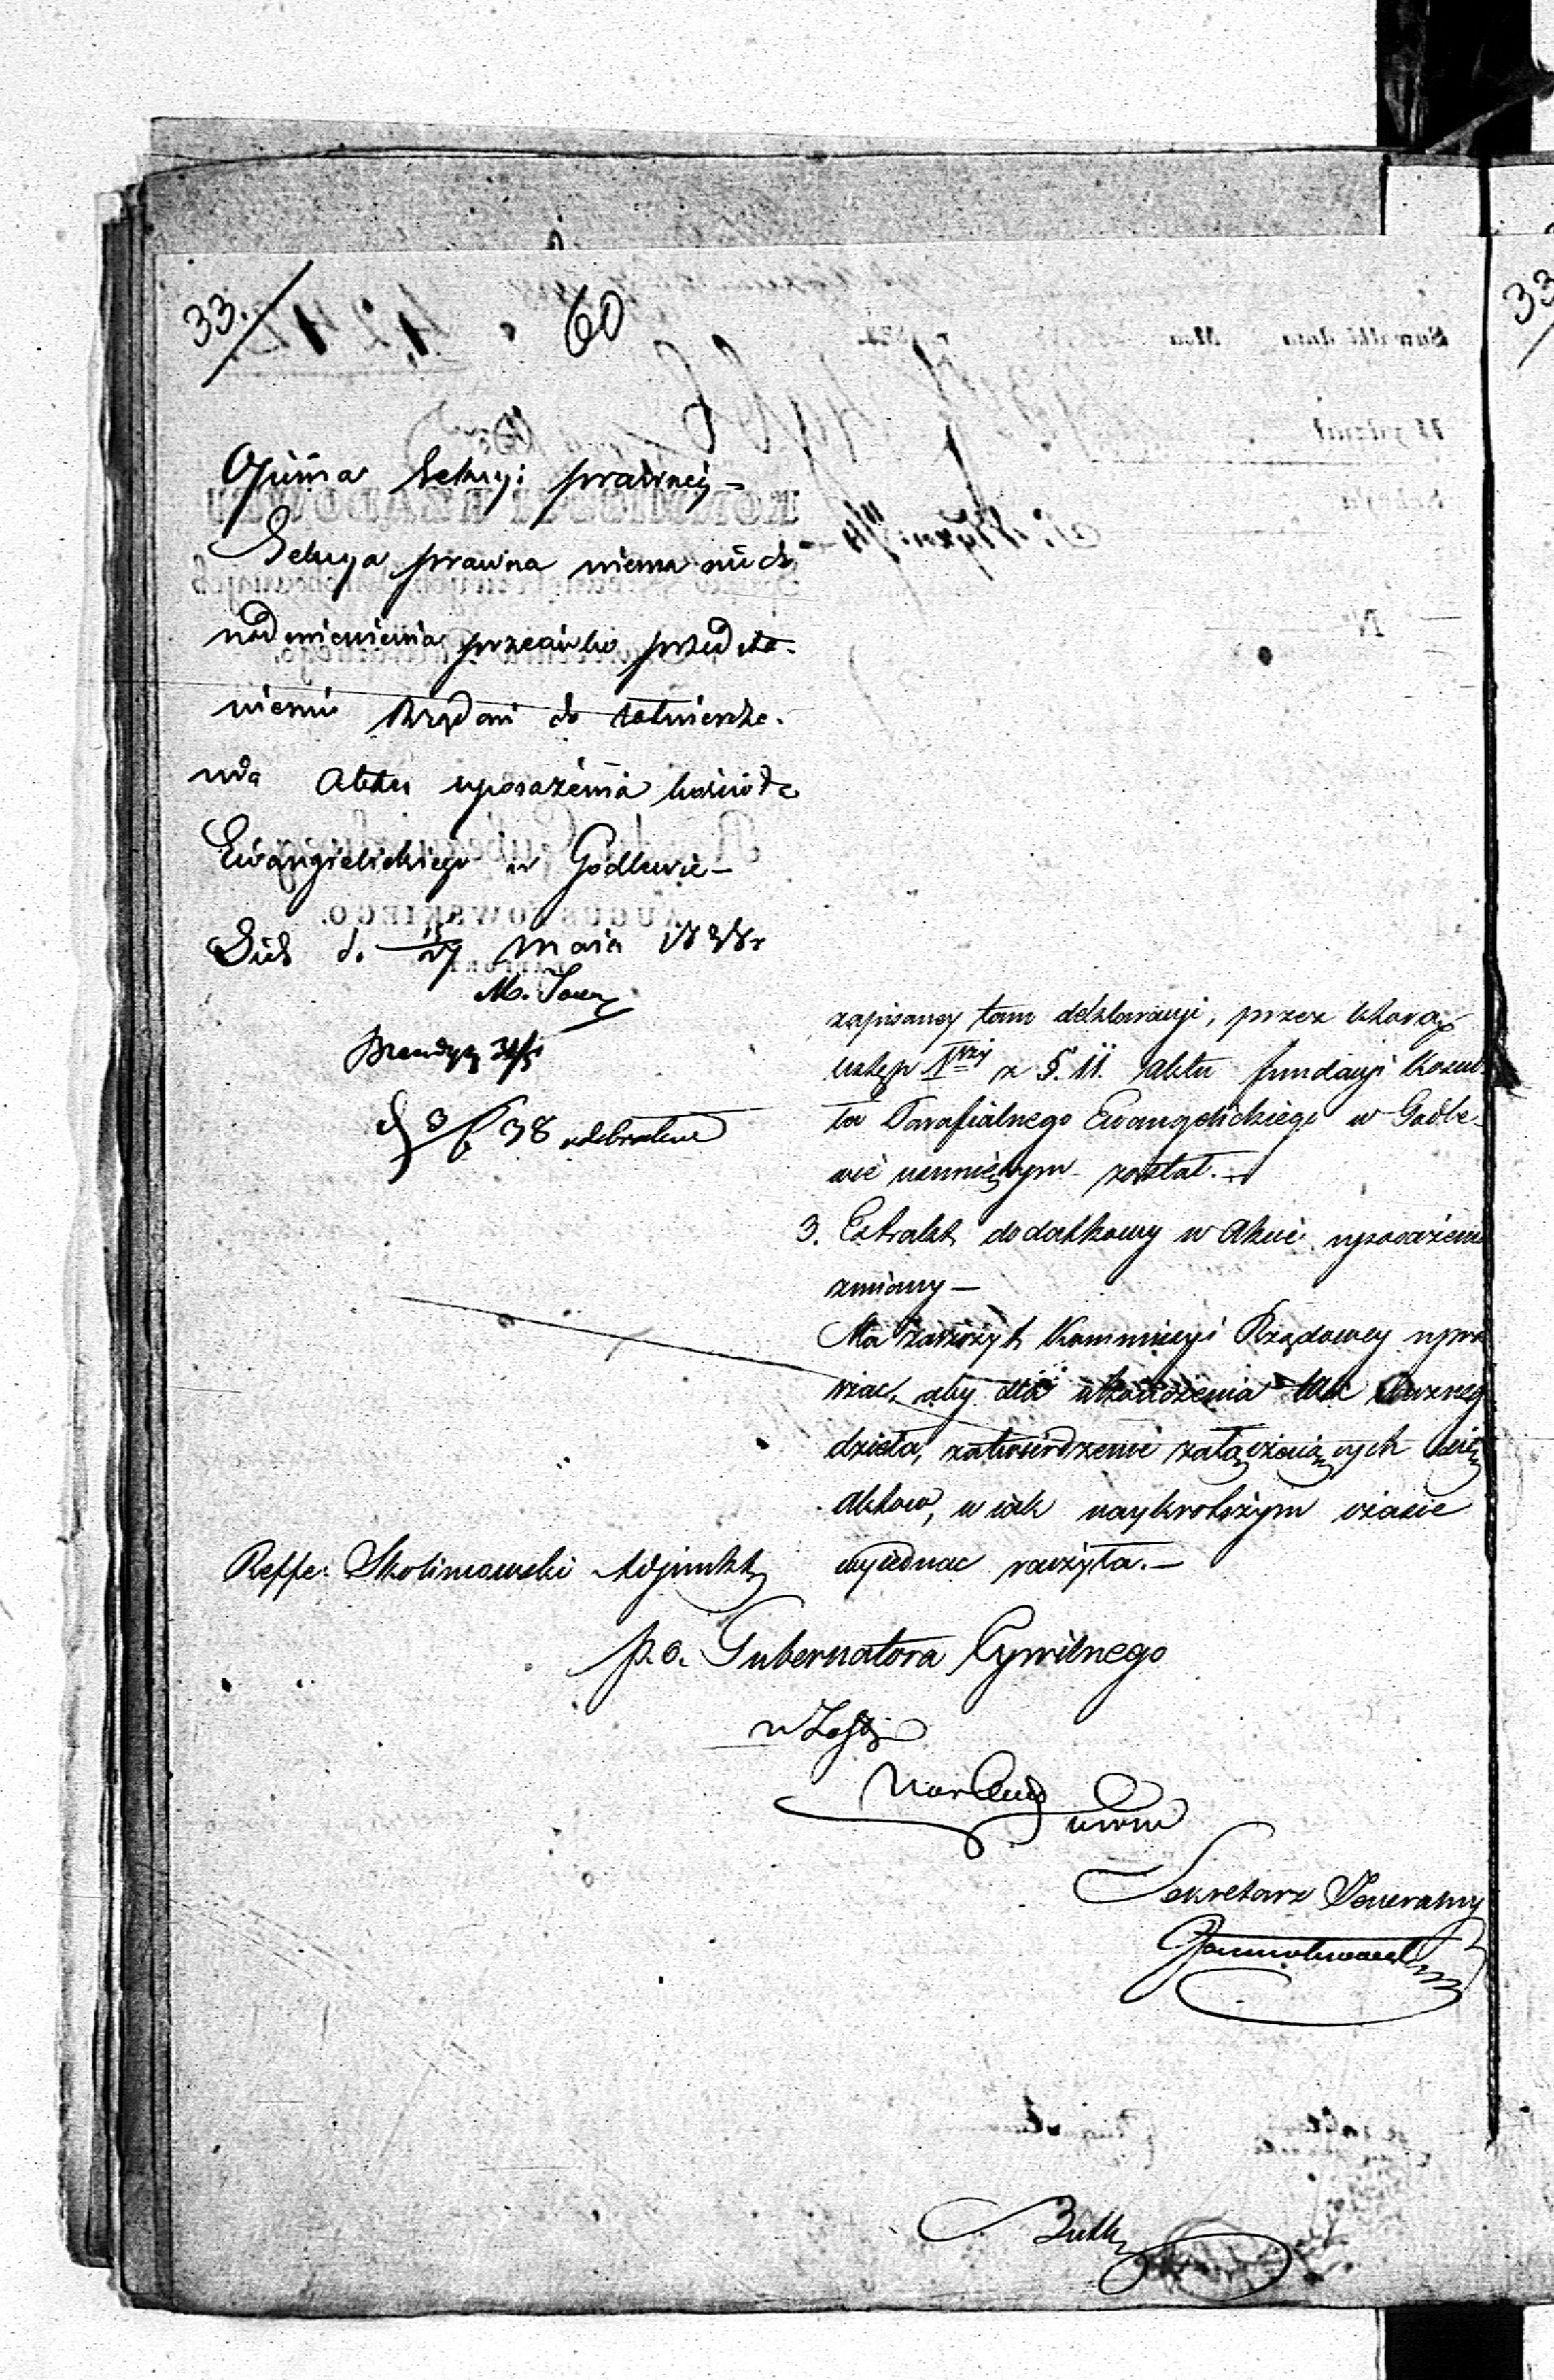 33.
60
Opinia Sekcyi prawney –
Sekcya prawna niema nic do
nadmienienia przeciwko przedsta-
wieniu Rządowi do zatwierdze-
nia Aktu uposażenia kościoła
Ewangielickiego w Godlewie –
Dnia d. 15/27 Maia 1838r
38 odebrałem
zapisaney tam deklaracyi, przez ktorą
ustęp 1wszy z §. 11. Aktu fundacyi Kościo-
ła Parafialnego Ewangelickiego w Godle-
wie usuniętym został. –
3. Extrakt dodatkowy w Akcie uposażenia
zmiany –
Ma zaszczyt Kommissyi Rządowey upra
szać, aby dla
dzieła, zatwierdzenie załączaiących się
Aktow, w iak naykrotszym czasie
wyiednac raczyła. –
Reffe: Skolimowski Adjunkt
p.o. Gubernatora Cywilnego
w Zastę
Sekretarz Jeneralny